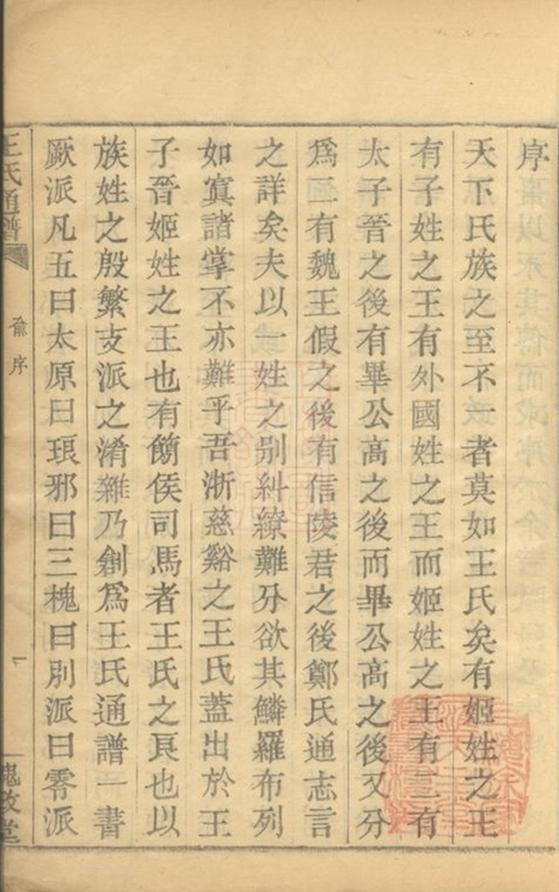 序
天下氏族之至不一者莫如王氏矣有姬姓之王
有子姓之王有外國姓之王而姬姓之王有三有
太子晉之後有畢公高之後而畢公高之後又分
爲二有魏王假之後有信陵君之後鄭氏通志言
之詳矣夫以一姓之别糾繚難分欲其鱗羅布列
如寘諸掌不亦難乎吾浙慈谿之王氏蓋出於王
子晉姬姓之王也有簡侯司馬者王氏之良也以
族姓之殷繁支派之淆雜乃創爲王氏通譜一書
厥派凡五曰太原曰琅邪曰三槐曰別派曰零派
王氏通譜
俞序
一
槐政堂